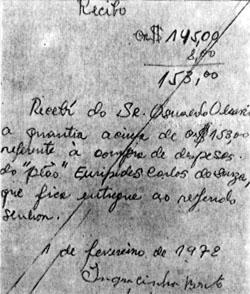 Recibo
CR$ 145,00
8,00
153,00
Recebí do Sr. Osvaldo
a quantia acima de CR$ 153,00
referente à compra de despesas
do "pião" Eurípides Carlos de Souza,
que fica entregue ao referido
senhor.
1 de fevereiro de 1972